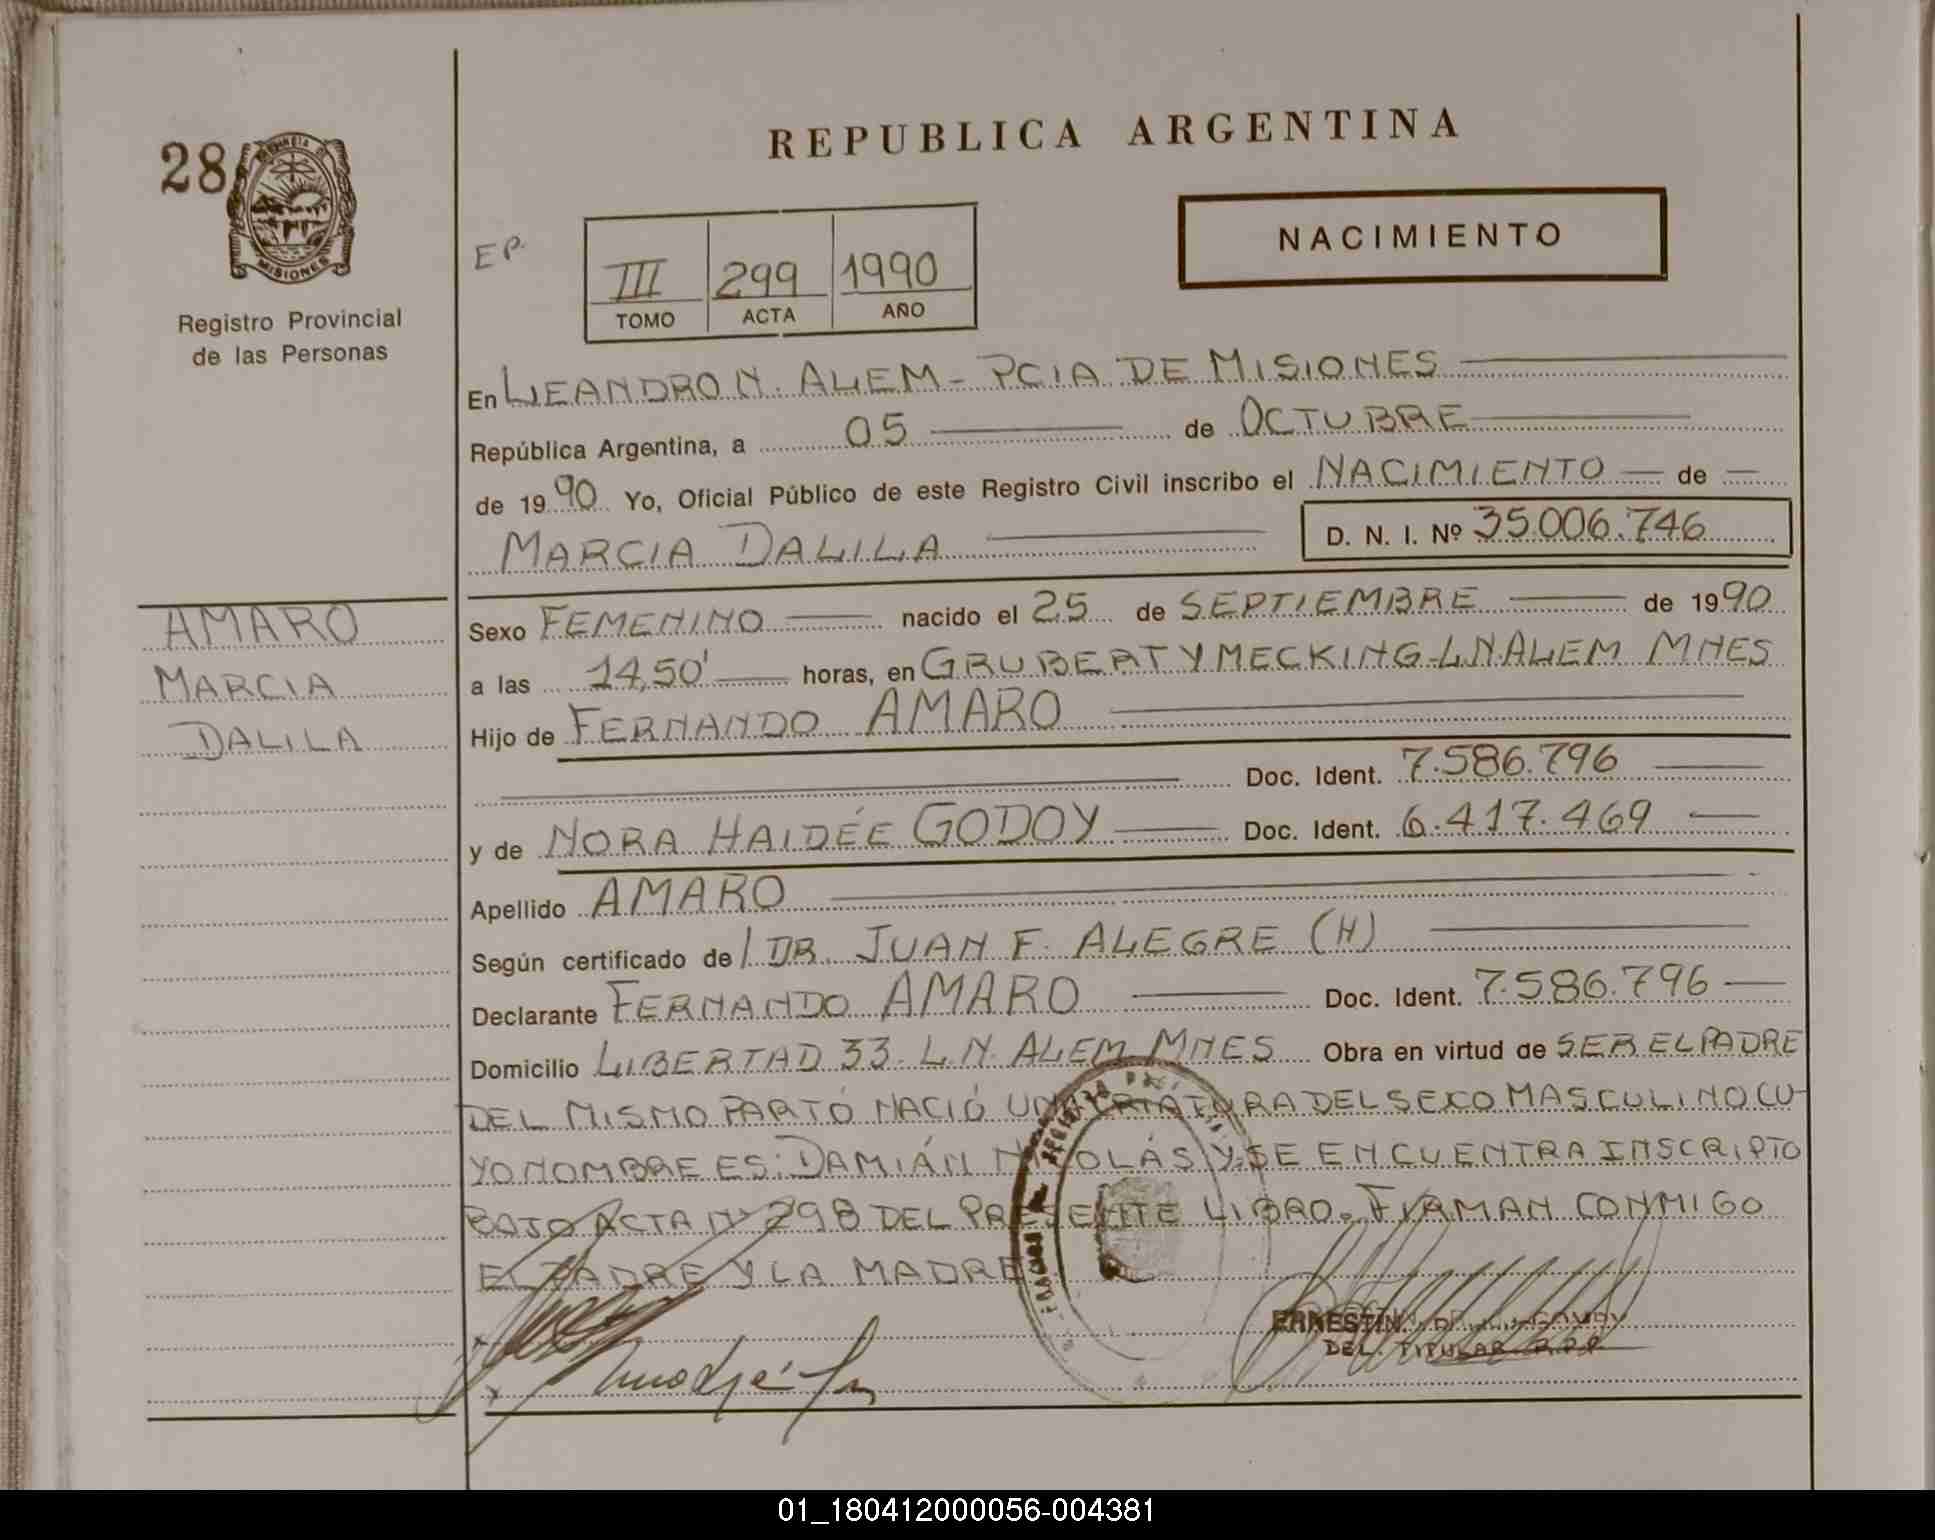 28
MISIONES
Registro Provincial
de las Personas
REPUBLICA ARGENTINA
NACIMIENTO
EP.
III 299 1990
TOMO ACTA AÑO
En LEANDRO N. ALEM - PCIA DE MISIONES
República Argentina, a 05 de OCTUBRE
de 1990 Yo, Oficial Público de este Registro Civil inscribo el NACIMIENTO de
MARCIA DALILA D. N. I. Nº 35.006.746
AMARO
MARCIA
DALILA
Sexo FEMENINO nacido el 25 de SEPTIEMBRE de 1990
a las 14,50' horas, en GRUBERT Y MECKING L N ALEM MNES
Hijo de FERNANDO AMARO
Doc. Ident. 7.586.796
y de NORA HAIDÉE GODOY Doc. Ident. 6.417.469
Apellido AMARO
Según certificado de DR. JUAN F. ALEGRE (H)
Declarante FERNANDO AMARO Doc. Ident. 7.586.796
Domicilio LIBERTAD 33 - L.N. ALEM MNES Obra en virtud de SER EL PADRE
DEL MISMO PARTÓ NACIÓ UNA CRIATURA DEL SEXO MASCULINO CU-
YO NOMBRE ES: DAMIÁN NICOLÁS Y SE ENCUENTRA INSCRIPTO
BAJO ACTA Nº 298 DEL PRESENTE LIBRO. FIRMAN CONMIGO
EL PADRE Y LA MADRE
DEL. TITULAR R.P.P.
01_180412000056-004381